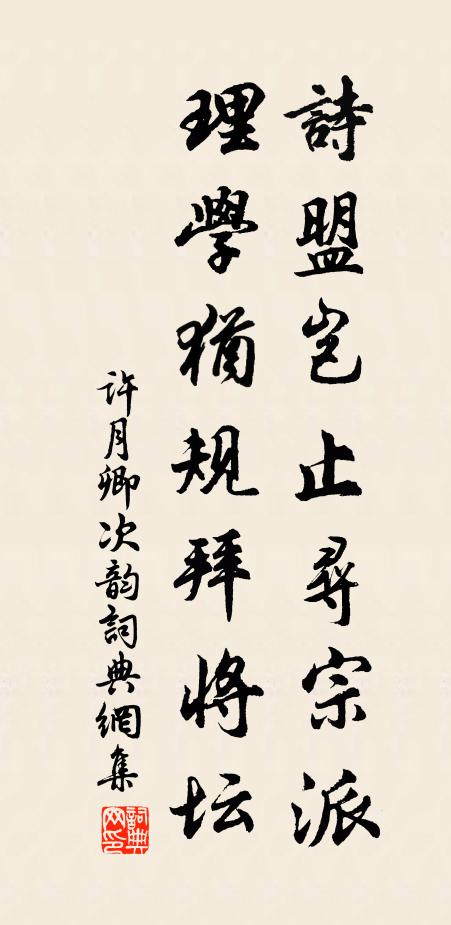 詩盟豈止尋宗派
理學猶規拜將坛
許月卿次韵詞典網集
詞典网印